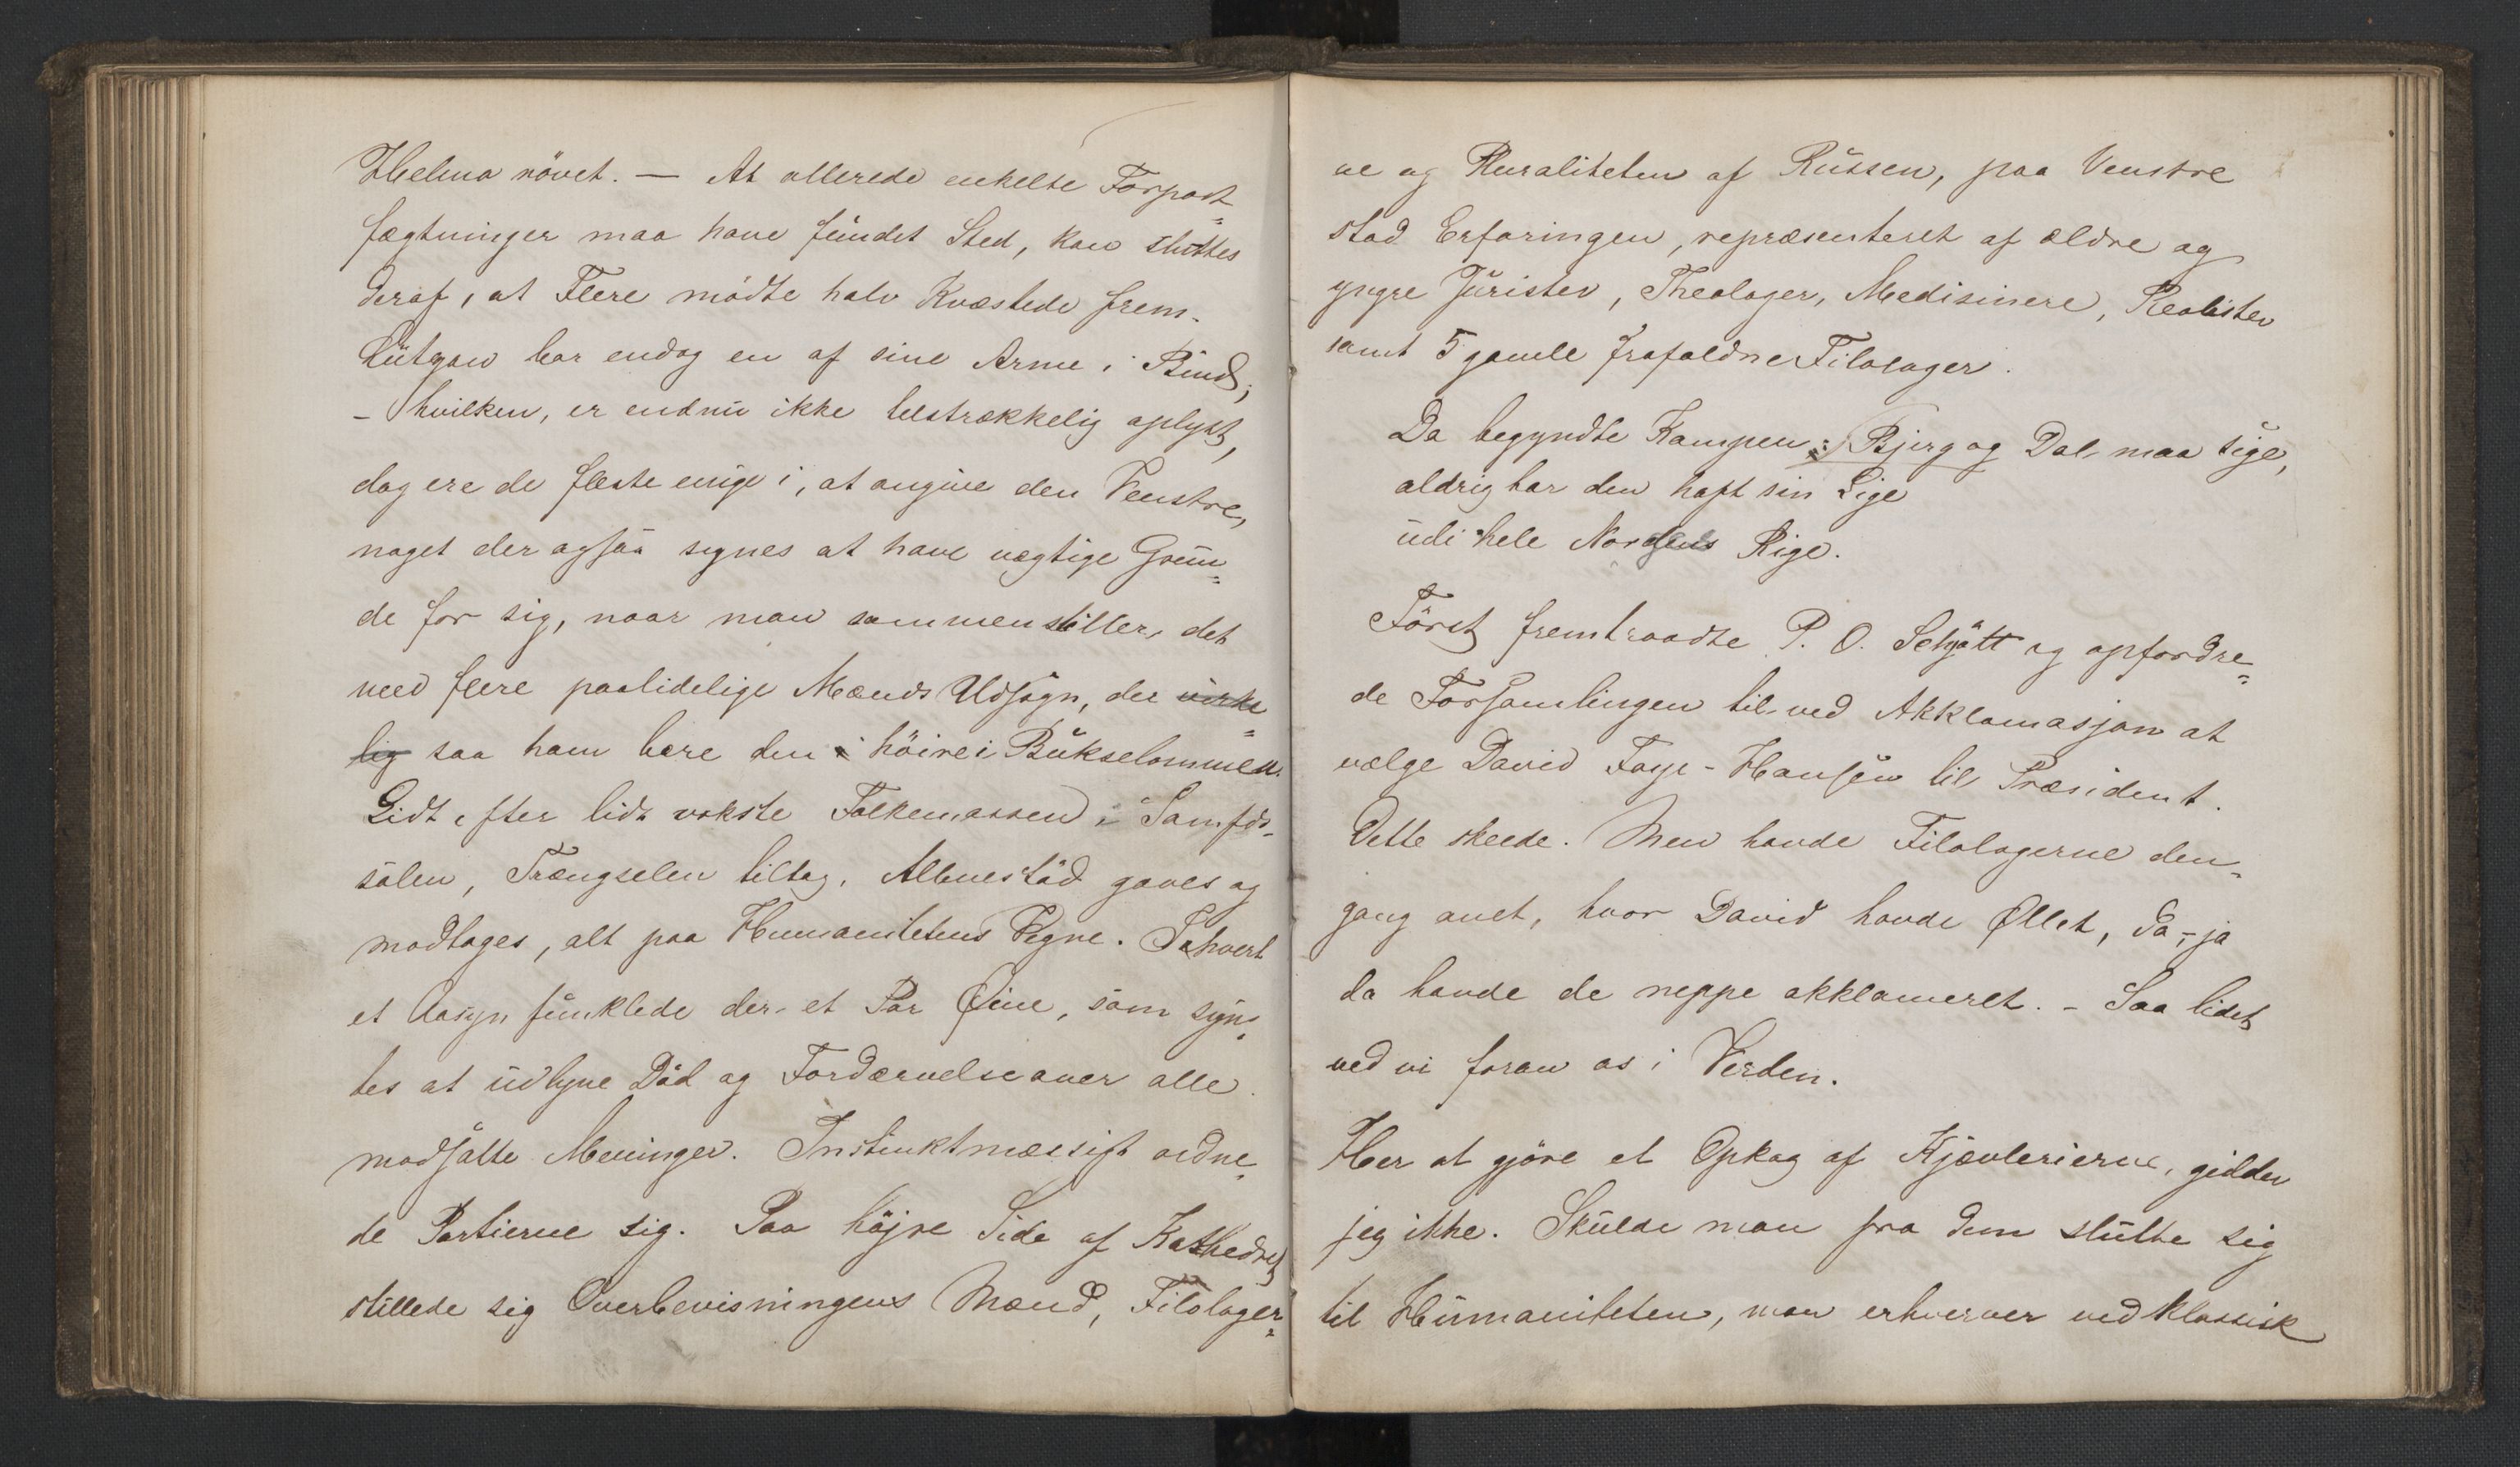 Helena rövet. — At allerede enkelte Forpost=
fægtninger maa have fundet Sted, kan sluttes
deraf, at Flere mödte halv Kvæstede frem.
Lütgow bar endog en af sine Arme i Bind;
– hvilken, er endnu ikke telstrækkelig oplyst,
dog ere de fleste enige i, at angive den Venstre,
noget der ogsaa synes at have vægtige Grun=
de for sig, naar man sammenstiller, det
med flere paalidelige Mænds Udsagn, der virke=
lig saa ham bære den i höire i Bukselommen.
Lidt efter lidt vokste Folkemassen i Samfds-
salen, Trængselen tiltog, Albuestöd gaves og
modtoges, alt paa Humanitetens Vegne. I hvert
et Aasyn funklede der et Par Öine, som syn=
tes at udlyne Död og Fordærvelse over alle
modsatte Meninger. Instinktmæssigt ordne=
de Partierne sig. Paa höjre Side af Kathedret
stillede sig Overbevisningens Mænd, Filologer=
ne og Pluraliteten af Russen, paa Venstre
stod Erfaringen, repræsenteret af ældre og
yngre Jurister, Theologer, Medisinere, Realister
samt 5 gamle frafaldne Filologer.
Da begyndte Kampen: Bjerg og Dal maa sige,
aldrig har den haft sin Lige
udi hele Nordens Rige.
Först fremtraadte P. O. Schjött og opfordre=
de Forsamlingen til ved Akklamasjon at
vælge David Faye-Hansen til Præsident.
Dette skeede. Men havde Filologerne den=
gang anet, hvor David havde Øllet, da, – ja
da havde de neppe akklameret. – Saa lidet
ved vi foran os i Verden.
Her at gjöre et Opkog af Kjævlerierne, gidder
jeg ikke. Skulde man fra dem slutte sig
til Humaniteten, man erhverver ved klassisk